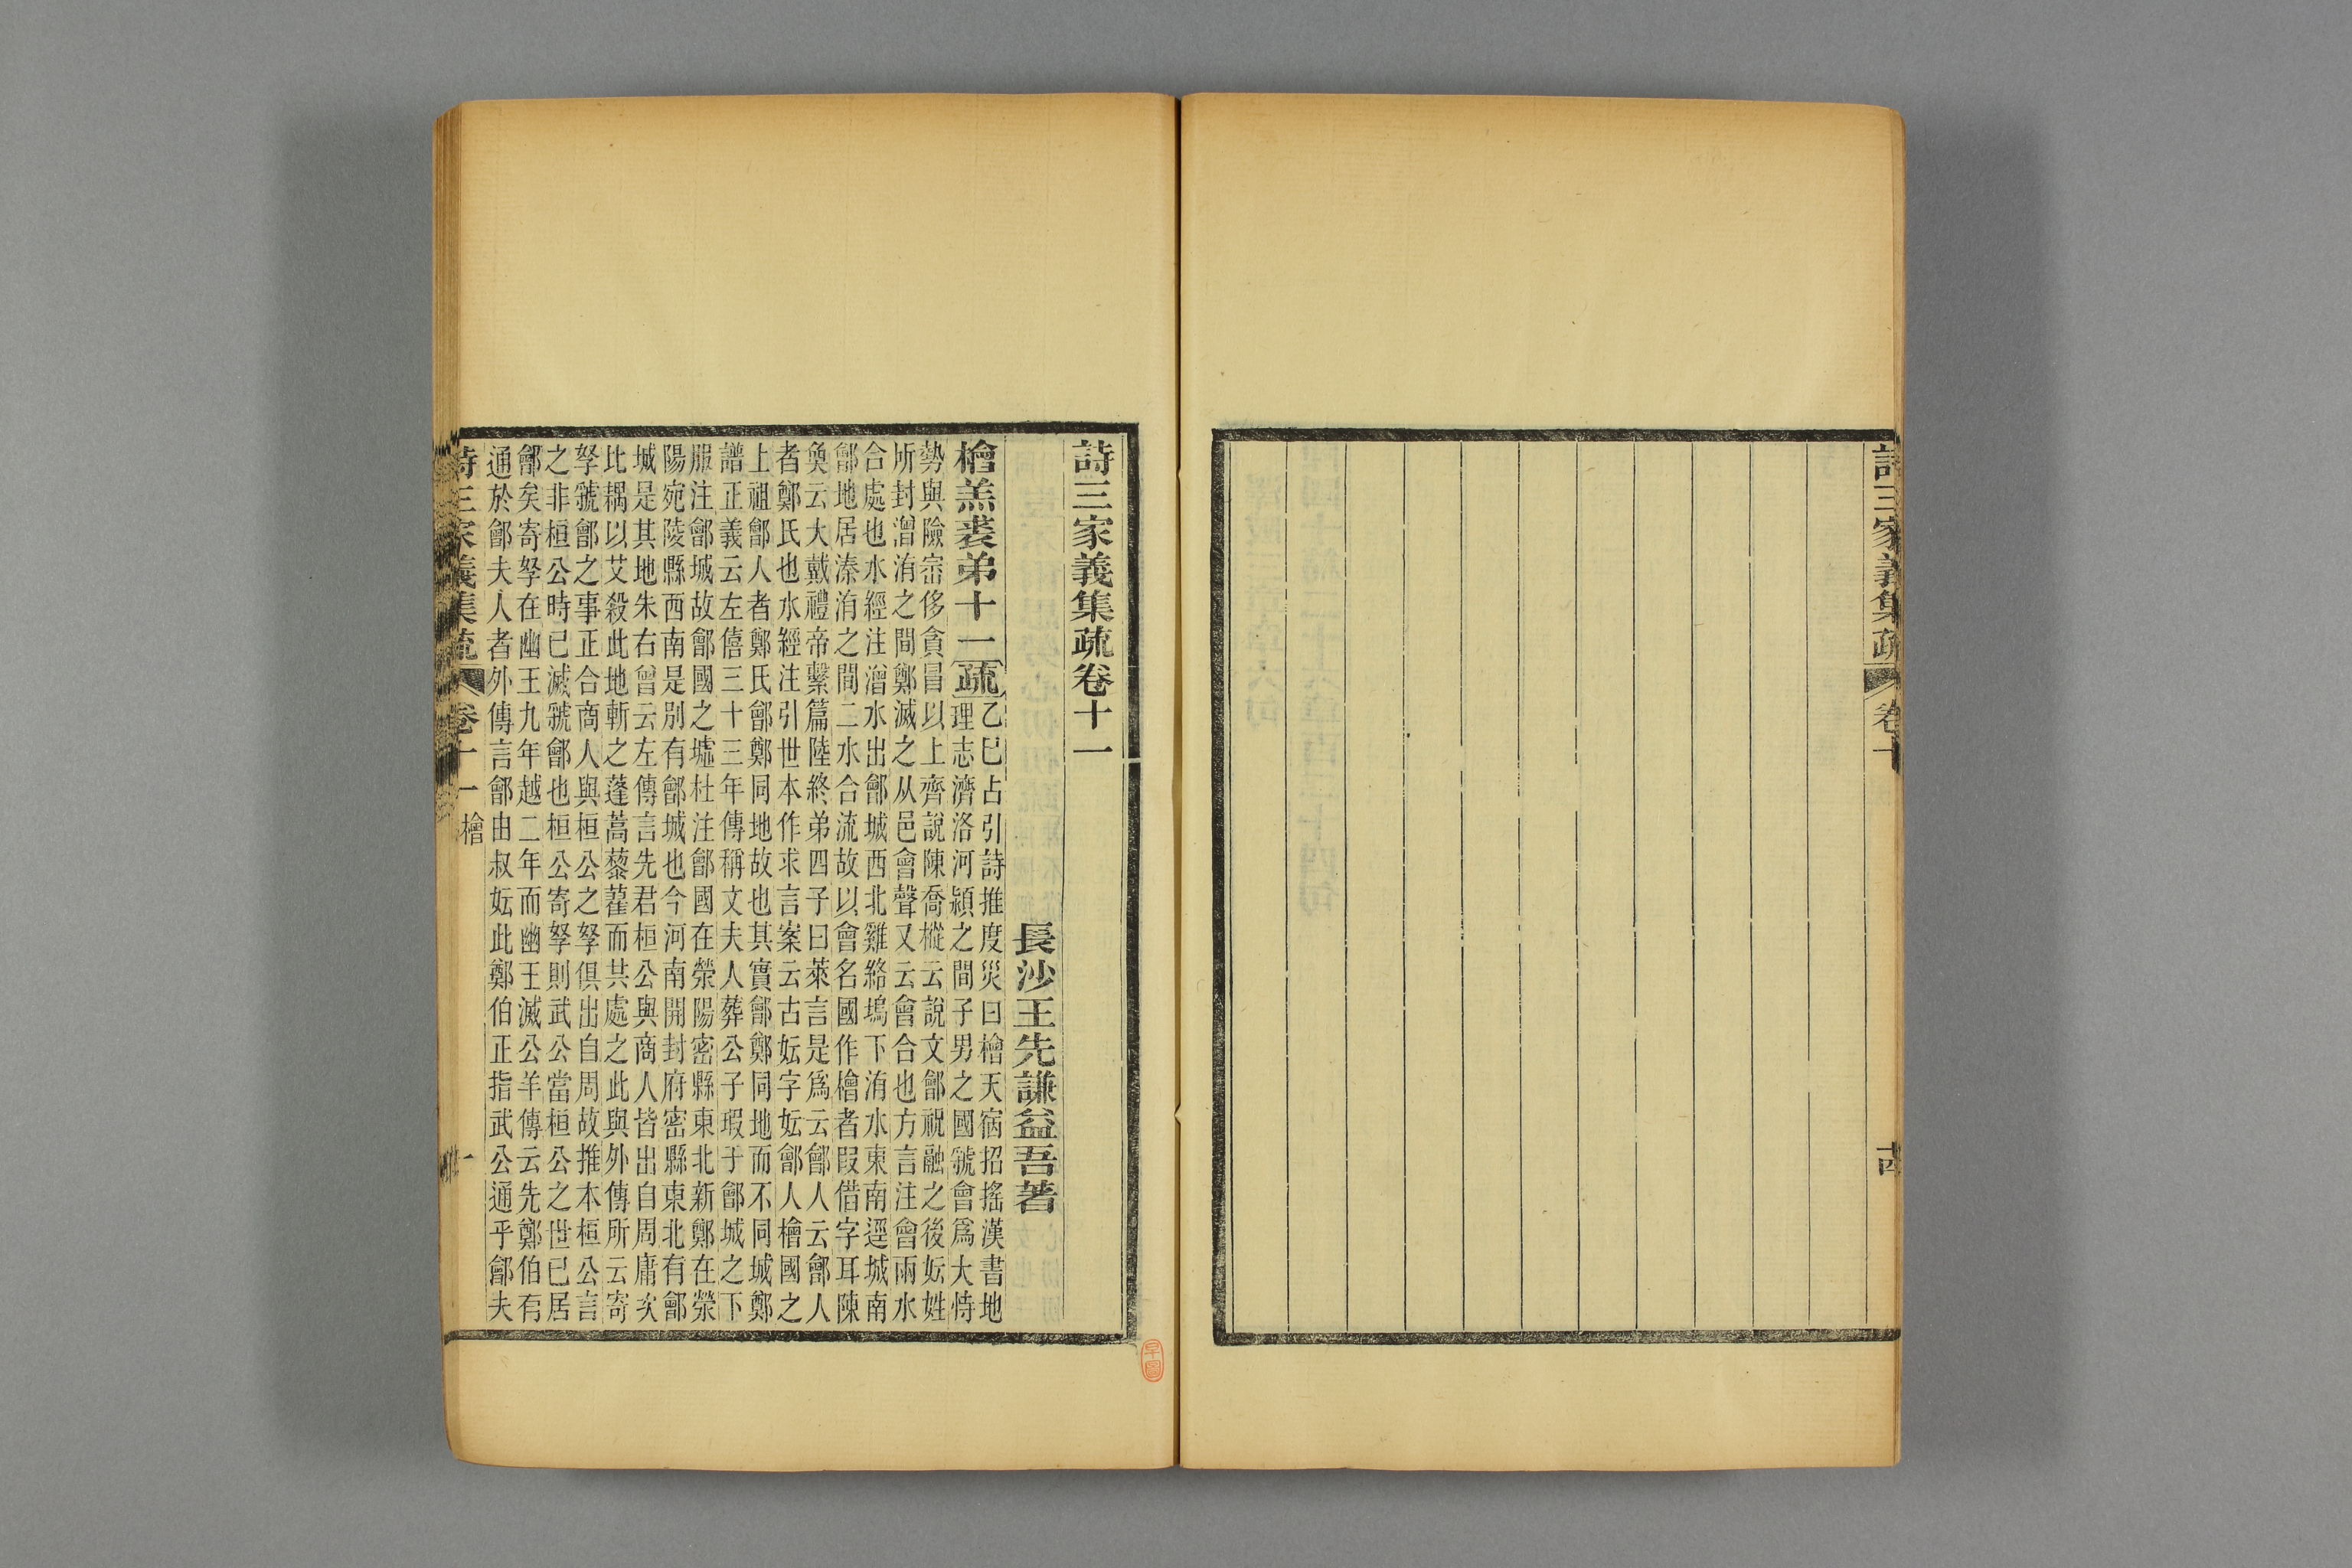 詩三家義集疏
卷十
詩三家義集疏卷十一
長沙王先謙益吾著
檜羔裘弟十一
疏
乙巳占引詩推度災曰檜天宿招搖漢書地
理志濟洛河潁之間子男之國虢會爲大恃
勢與險崈侈貪冒以上齊說陳喬樅云說文鄶祝融之後妘姓
所封潧洧之間鄭滅之从邑會聲又云會合也方言注會兩水
合處也水經注潧水出鄶城西北雞絡塢下洧水東南逕城南
鄶地居溱洧之間二水合流故以會名國作檜者叚借字耳陳
奐云大戴禮帝繫篇陸終弟四子曰萊言是爲云鄶人云鄶人
者鄭氏也水經注引世本作求言案云古妘字妘鄶人檜國之
上祖鄶人者鄭氏鄶鄭同地故也其實鄶鄭同地而不同城鄭
譜正義云左僖三十三年傳稱文夫人葬公子瑕于鄶城之下
服注鄶城故鄶國之墟杜注鄶國在滎陽密縣東北新鄭在滎
陽宛陵縣西南是別有鄶城也今河南開封府密縣東北有鄶
城是其地朱右曾云左傳言先君桓公與商人皆出自周庸次
比耦以艾殺此地斬之蓬蒿藜藋而共處之此與外傳所云寄
孥虢鄶之事正合商人與桓公之孥俱出自周故推本桓公言
之非桓公時已滅虢鄶也桓公寄孥則武公當桓公之世已居
鄶矣寄孥在幽王九年越二年而幽王滅公羊傳云先鄭伯有
通於鄶夫人者外傳言鄶由叔妘此鄭伯正指武公通乎鄶夫
詩三家義集疏
卷十一
檜
一